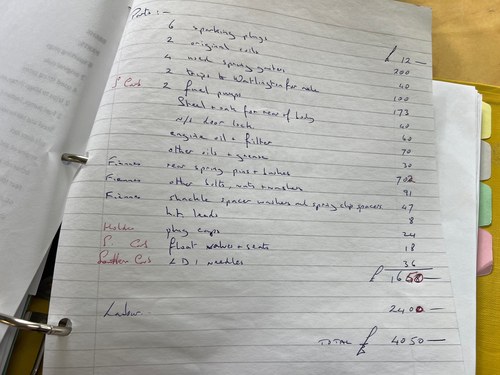 Parts :-
6 sparking plugs £ 12 —
2 original coils 200
4 used spring gaiters 40
2 trips to Watlington for 100
S. Carb 2 fuel pumps 173
Steel + oak for rear of body 40
n/s door lock 60
engine oil + filter 70
other oils + grease 30
Fiennes rear spring pins + bushes 702
Fiennes other bolts, nuts + washers 91
Fiennes shackle spacer washers and spring slip spacers 47
h.t. leads 8
Holden plug caps 24
S. Carb float valves + seats 18
Southern Carb 2 D1 needles 36
£ 1650 —
Labour 2400 —
TOTAL £ 4050 —